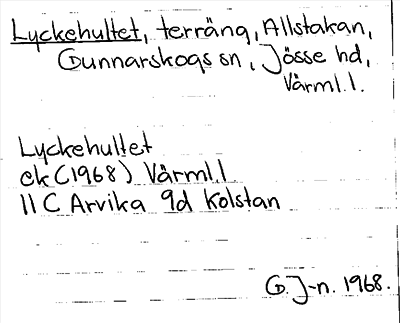 Lyckehultet, terräng, Allstakan,
Gunnarskogs sn, Jösse hd,
Värml.l.
Lyckehultet
ek (1968) Värml.l
11 C Arvika 9d Kolstan
G. J-n. 1968.